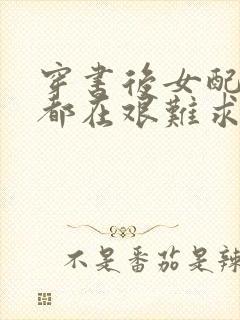 穿書後女配
都在艱難求
不是番茄是辣